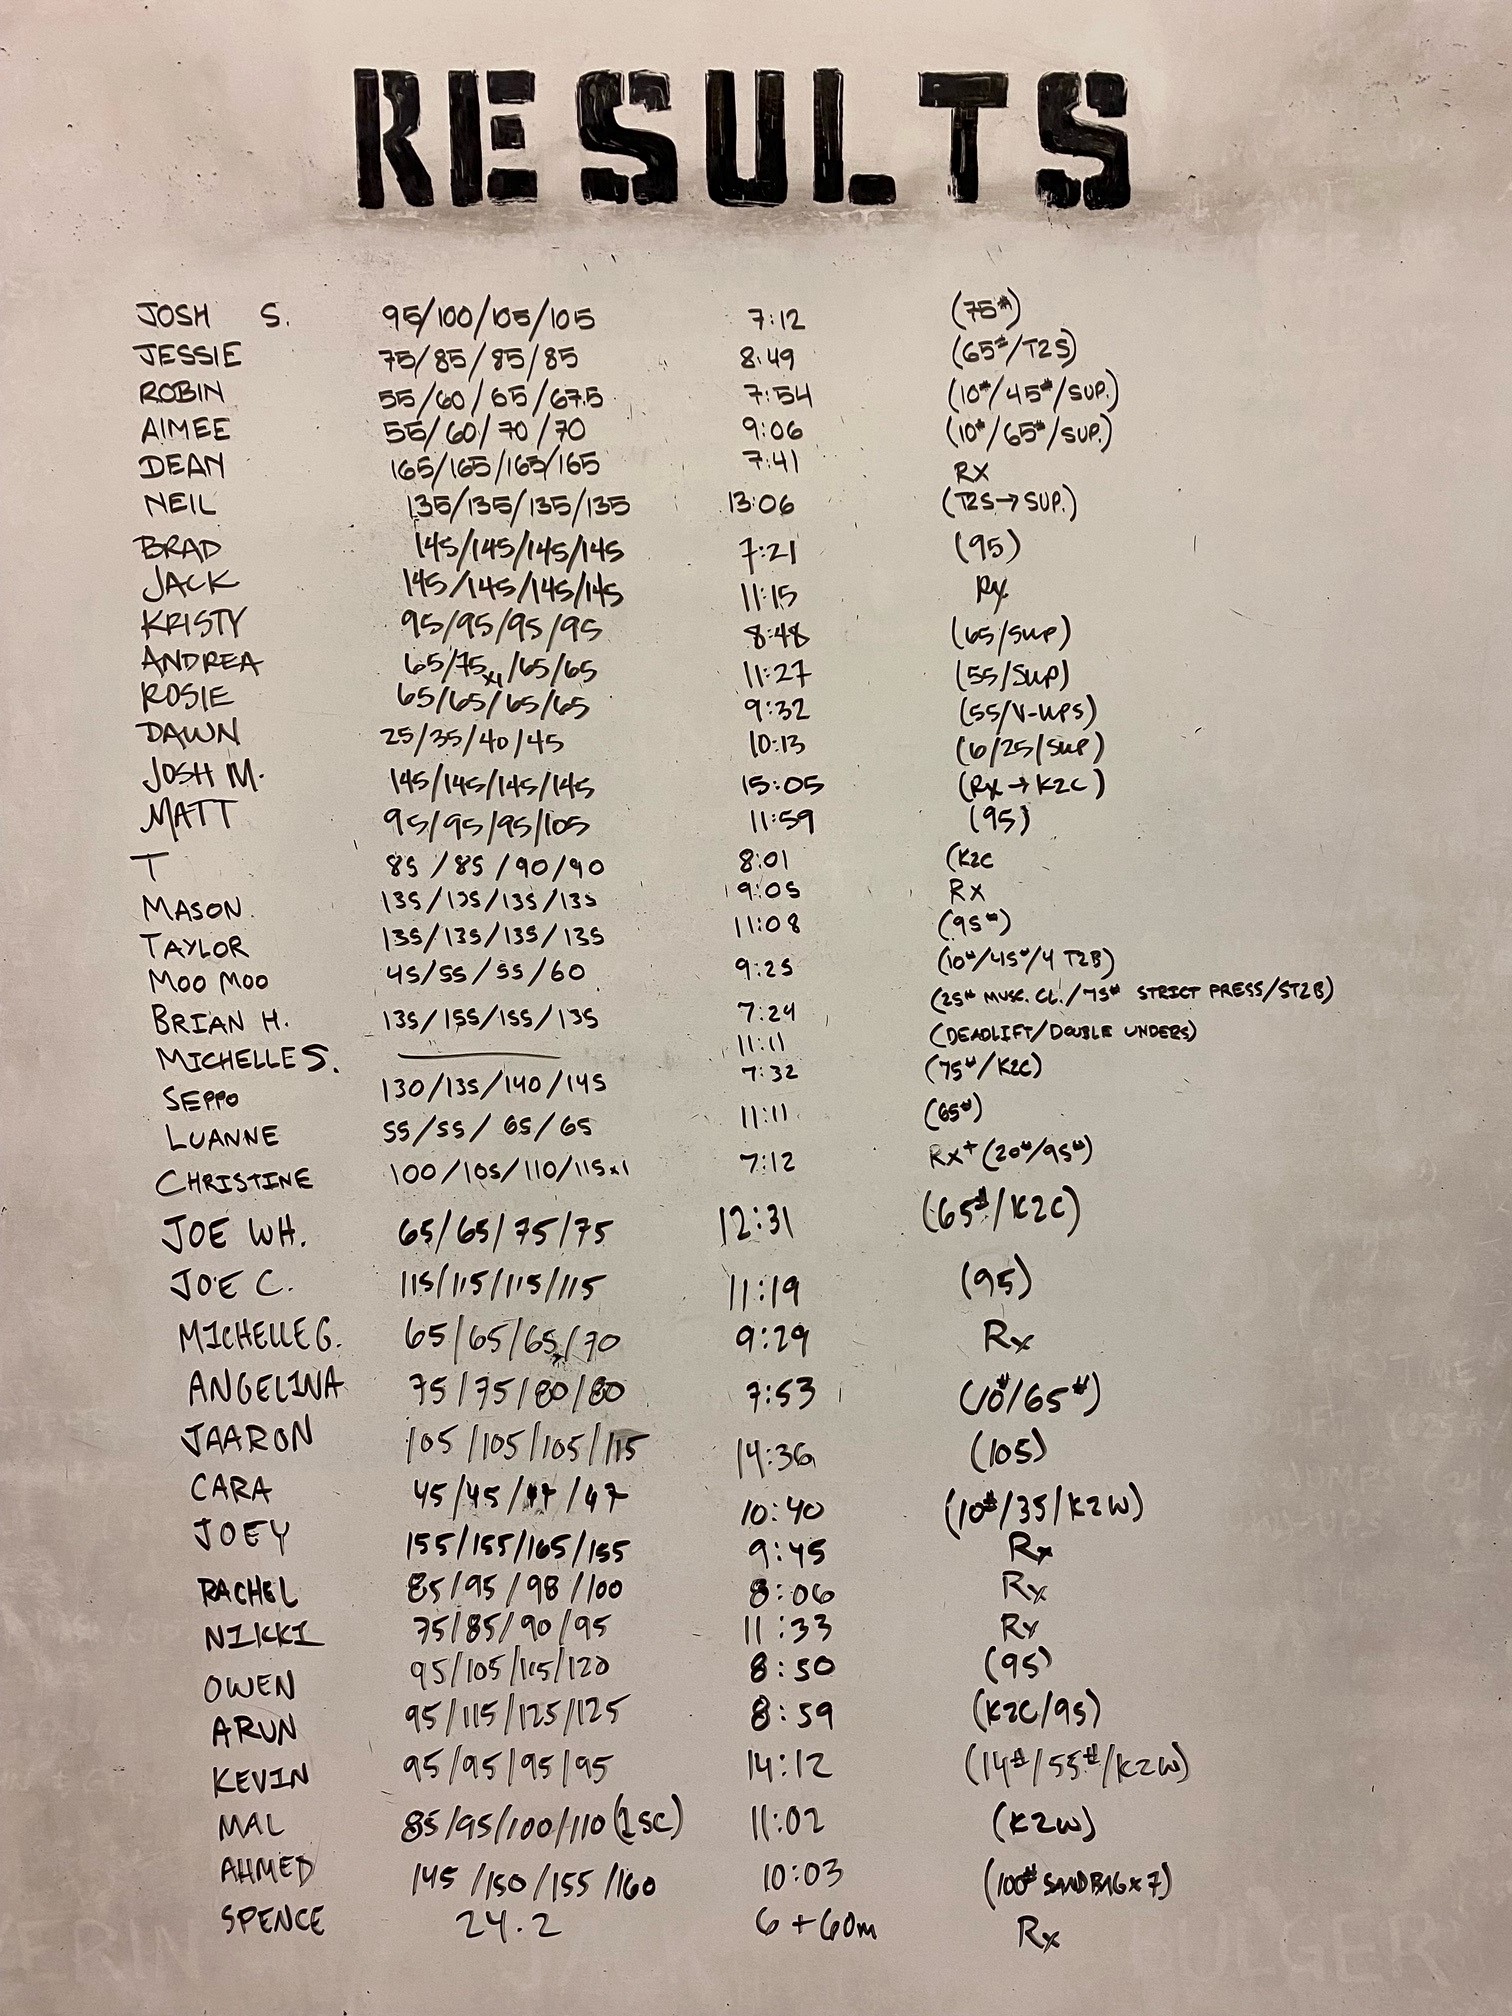 RESULTS
JOSH S. 95/100/105/105 7:12 (75#)
JESSIE 75/85/85/85 8:49 (65#/T2S)
ROBIN 55/60/65/67.5 7:54 (10#/45#/SUP.)
AIMEE 55/60/70/70 9:06 (10#/65#/SUP.)
DEAN 165/165/165/165 7:41 RX
NEIL 135/135/135/135 13:06 (T2S→SUP.)
BRAD 145/145/145/145 7:21 (95)
JACK 145/145/145/145 11:15 Rx
KRISTY 95/95/95/95 8:48 (65/SUP)
ANDREA 65/75x1/65/65 11:27 (55/SUP)
ROSIE 65/65/65/65 9:32 (55/V-UPS)
DAWN 25/35/40/45 10:13 (6/25/SUP)
JOSH M. 145/145/145/145 15:05 (Rx→K2C)
MATT 95/95/95/105 11:59 (95)
T 85/85/90/90 8:01 (K2C
MASON. 135/135/135/135 9:05 RX
TAYLOR 135/135/135/135 11:08 (95#)
MOO MOO 45/55/55/60 9:25 (10#/45#/4 T2B)
BRIAN H. 135/155/155/135 7:24 (25# MUSC. CL./75# STRICT PRESS/ST2B)
MICHELLE S. 11:11 (DEADLIFT/DOUBLE UNDERS)
SEPPO 130/135/140/145 7:32 (75#/K2C)
LUANNE 55/55/65/65 11:11 (65#)
CHRISTINE 100/105/110/115x1 7:12 Rx+ (20#/95#)
JOE WH. 65/65/75/75 12:31 (65#/K2C)
JOE C. 115/115/115/115 11:19 (95)
MICHELLE G. 65/65/65/70 9:29 Rx
ANGELINA 75/75/80/80 7:53 (10#/65#)
JAARON 105/105/105/115 14:36 (105)
CARA 45/45/47/47 10:40 (10#/35/K2W)
JOEY 155/155/165/155 9:45 Rx
RACHEL 85/95/98/100 8:06 Rx
NIKKI 75/85/90/95 11:33 Rx
OWEN 95/105/115/120 8:50 (95)
ARUN 95/115/125/125 8:59 (K2C/95)
KEVIN 95/95/95/95 14:12 (14#/55#/K2W)
MAL 85/95/100/110 (1SC) 11:02 (K2W)
AHMED 145/150/155/160 10:03 (100# SANDBAG x 7)
SPENCE 24.2 6+60m Rx